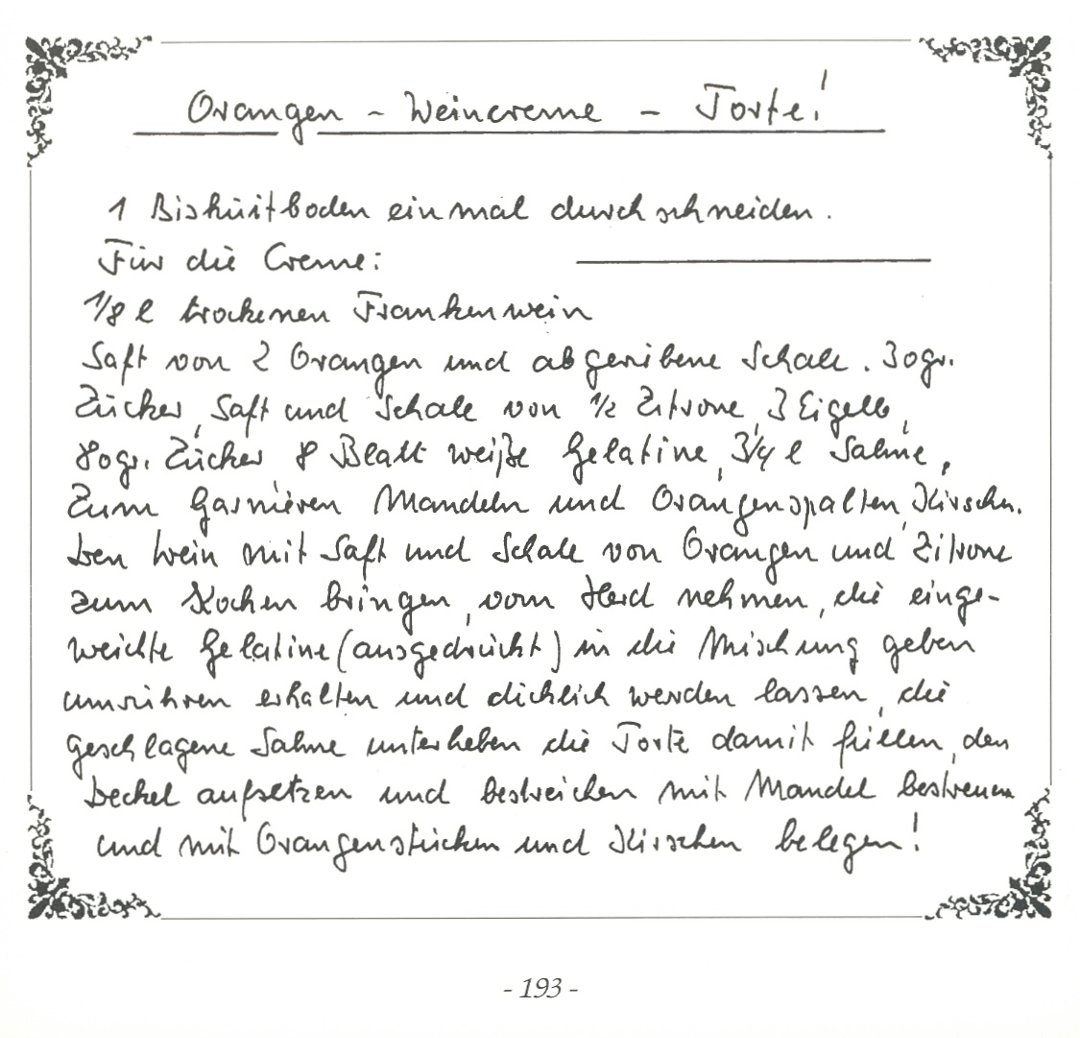 Orangen - Weincreme - Torte!
1 Biskuitboden einmal durchschneiden.
Für die Creme:
1/8 l trockenen Frankenwein
Saft von 2 Orangen und abgeriebene Schale. 30gr.
Zucker, Saft und Schale von 1/2 Zitrone, 3 Eigelb,
80gr. Zucker 8 Blatt weiße Gelatine, 3/4 l Sahne,
Zum Garnieren Mandeln und Orangenspalten, Kirschen.
Den Wein mit Saft und Schale von Orangen und Zitrone
zum Kochen bringen, vom Herd nehmen, die einge-
weichte Gelatine (ausgedrückt) in die Mischung geben
umrühren erkalten und dicklich werden lassen, die
geschlagene Sahne unterheben die Torte damit füllen, den
Deckel aufsetzen und bestreichen mit Mandel bestreuen
und mit Orangenstücken und Kirschen belegen!
- 193 -